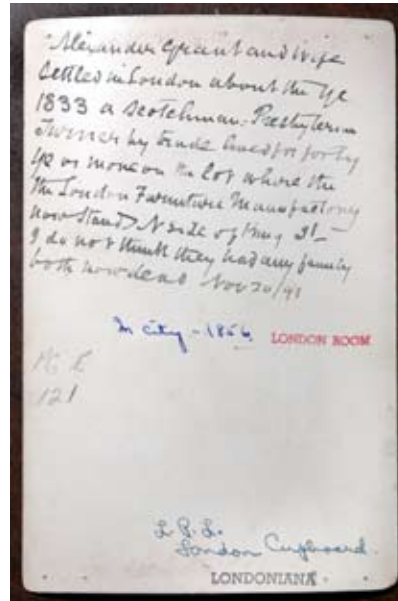 "Alexander Grant and Wife
Settled in London about the ye
1833 a Scotchman. Presbyterian
Turner by trade lived for forty
ye or more on the lot where the
the London Furniture Manufactory
now stands N side of King St_
I do not think they had any family
both now dead Nov 20/91
In city - 1856. LONDON ROOM
121
L. P. L.
London Cupboard.
LONDONIANA